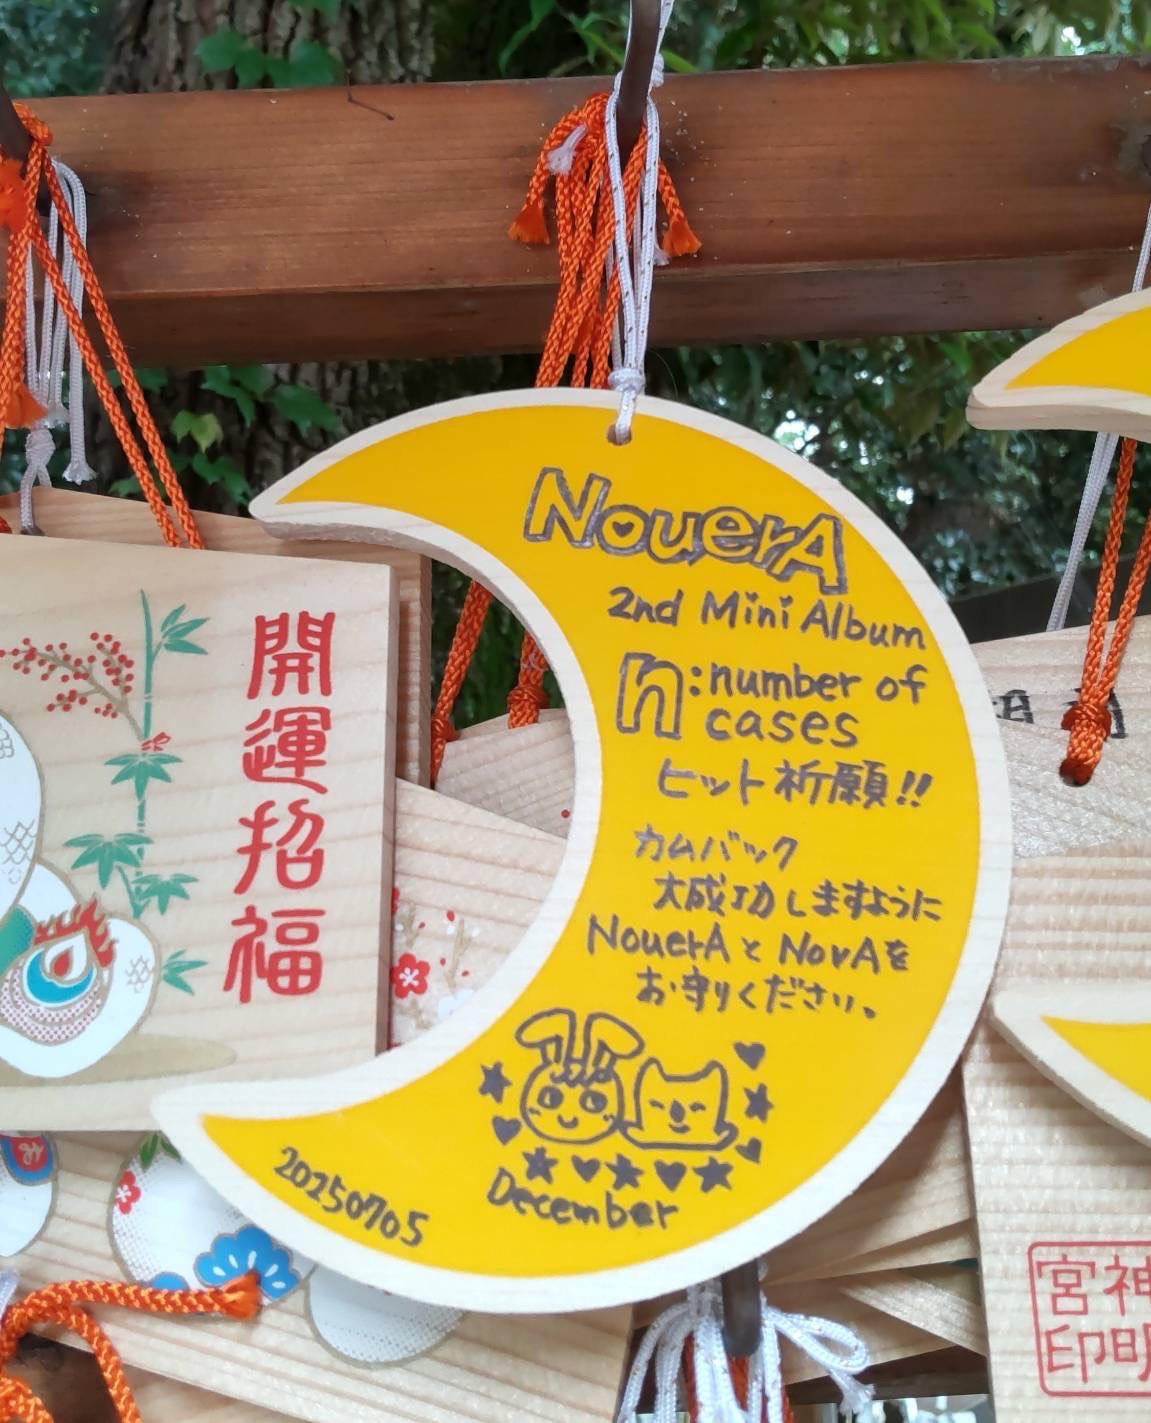 NouerA
2nd Mini Album
n:number of
cases
ヒット祈願!!
カムバック
大成功しますように
NouerAとNovAを
お守りください。
December
20250705
開運招福
神明
宮印